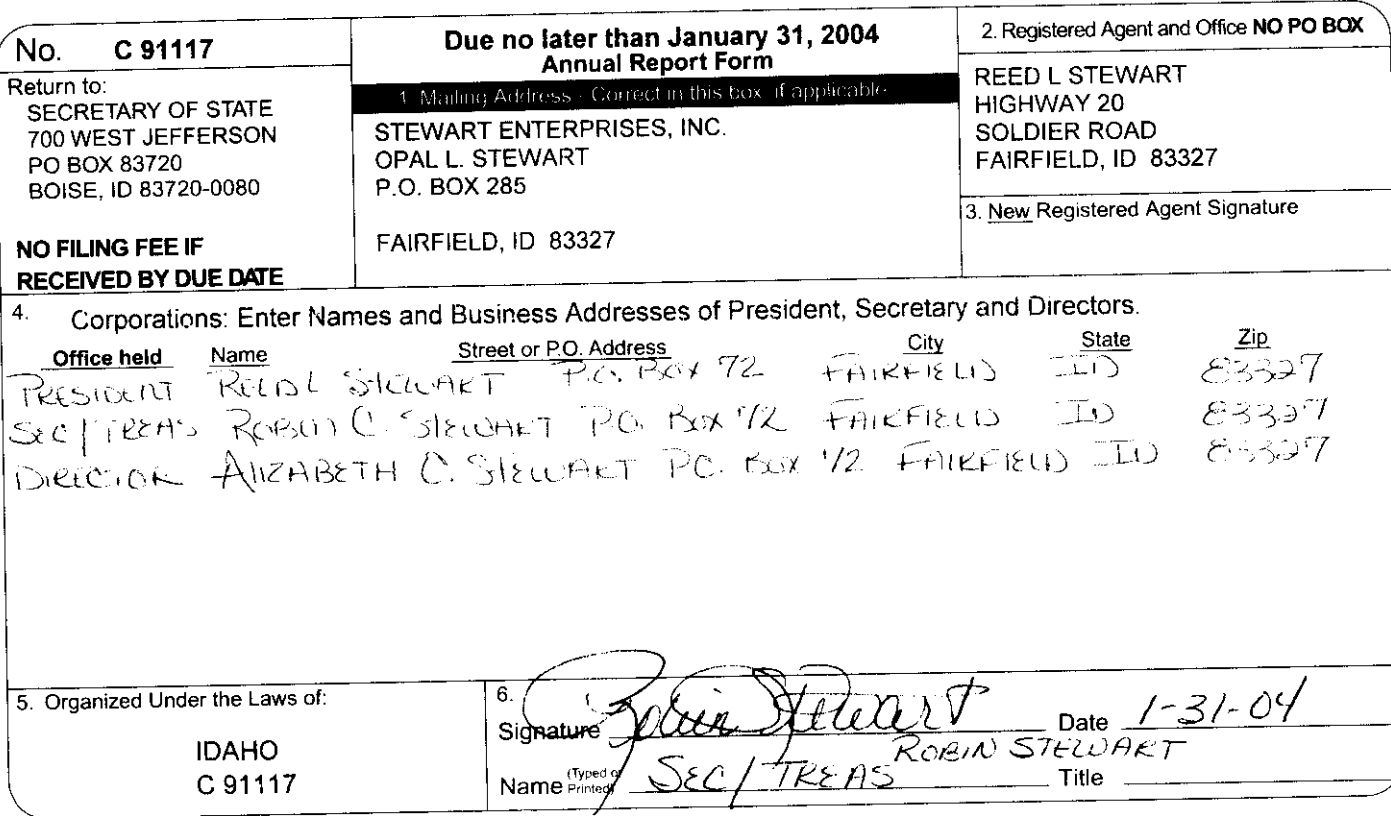 No. C 91117
Return to:
SECRETARY OF STATE
700 WEST JEFFERSON
PO BOX 83720
BOISE, ID 83720-0080
NO FILING FEE IF
RECEIVED BY DUE DATE
Due no later than January 31, 2004
Annual Report Form
1. Mailing Address - Correct in this box, if applicable
STEWART ENTERPRISES, INC.
OPAL L. STEWART
P.O. BOX 285
FAIRFIELD, ID 83327
2. Registered Agent and Office NO PO BOX
REED L STEWART
HIGHWAY 20
SOLDIER ROAD
FAIRFIELD, ID 83327
3. New Registered Agent Signature
4. Corporations: Enter Names and Business Addresses of President, Secretary and Directors.
Office held Name Street or P.O. Address City State Zip
PRESIDENT REED L STEWART P.O. BOX 72 FAIRFIELD ID 83327
SEC/TREAS ROBIN C. STEWART P.O. BOX 72 FAIRFIELD ID 83327
DIRECTOR ALIZABETH C. STEWART P.O. BOX 72 FAIRFIELD ID 83327
5. Organized Under the Laws of:
IDAHO
C 91117
6.
Signature Robin Stewart Date 1-31-04
ROBIN STEWART
Name (Typed or Printed) SEC/TREAS Title